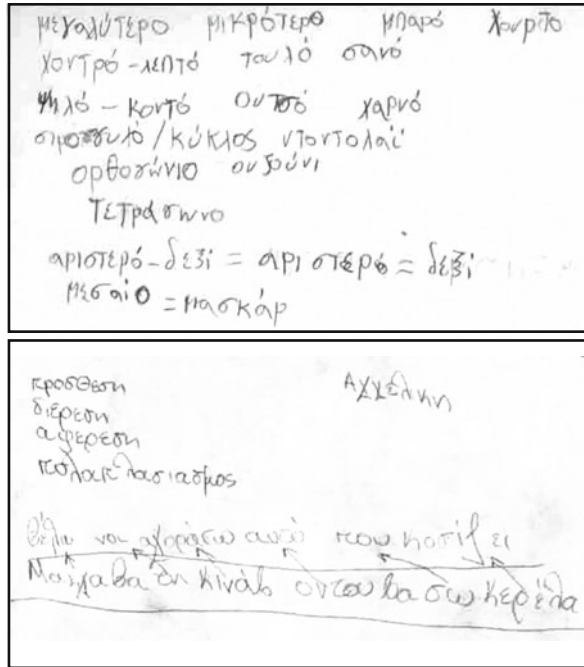 μεγαλύτερο μικρότερο μπαρό χουρίτο
χοντρό-λεπτό τουλό σανό
ψηλό-κοντό ουτσό χαρνό
στρογγυλό/κύκλος ντοντολαϊ
ορθογώνιο ουζούνι
τετράγωνο
αριστερό-δεξί = αριστερό = δεξί
μεσαίο = μασκάρ
προσθεση
διέρεση
αφερεση
πολαπλασιασμος
Αγγέλικη
θέλω να αγοράσω αυτό που κοστίζει
κινάβ